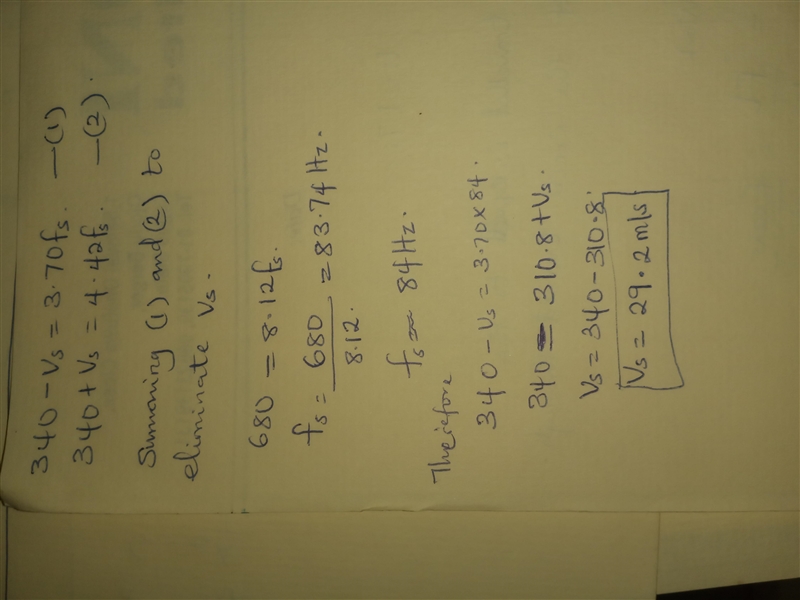 340 - Vs = 3.70fs. —(1)
340 + Vs = 4.42fs. —(2).
Summoning (1) and (2) to
eliminate Vs.
680 = 8.12fs.
fs = 680/8.12. = 83.74Hz.
fs = 84Hz.
Therefore
340 - Vs = 3.70 x 84.
340 = 310.8 + Vs.
Vs = 340 - 310.8.
Vs = 29.2 m/s